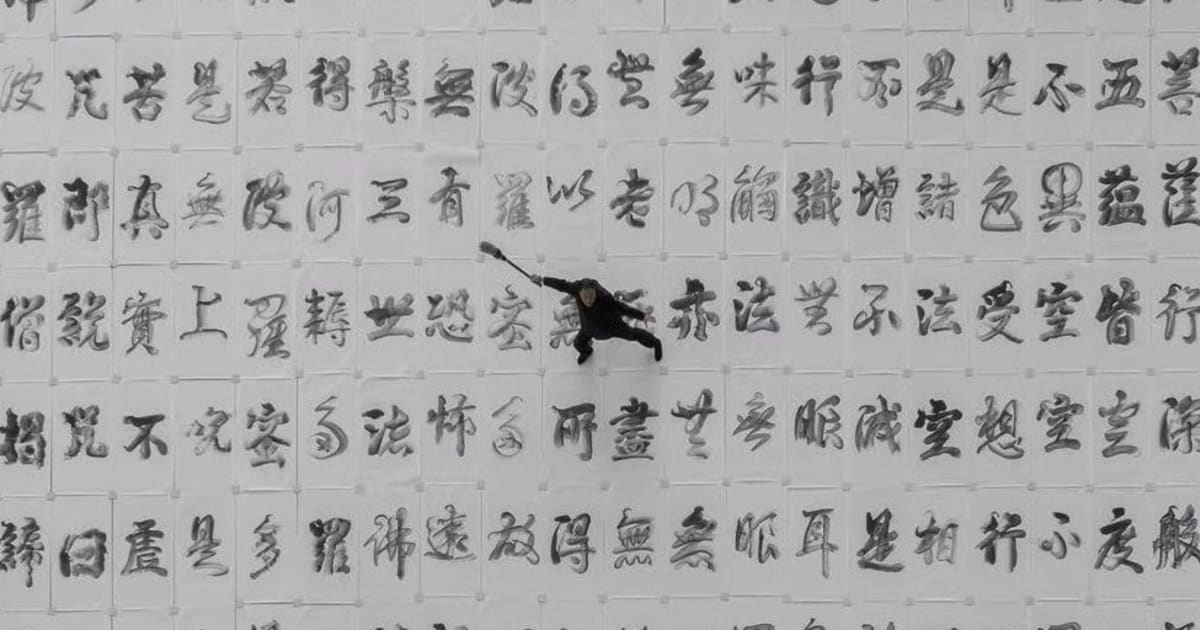 菩薩行深般
五蘊皆空度
不異空空不
是色受想行
是諸法空相
不增不減是
行識無眼耳
味觸法無眼
無明亦無無
無老盡無
得以無所得
波羅蜜多故
無有恐怖遠
槃三世諸佛
得阿耨多羅
若波羅蜜多
是無上咒是
苦真實不虛
咒即說咒曰
波羅僧揭諦